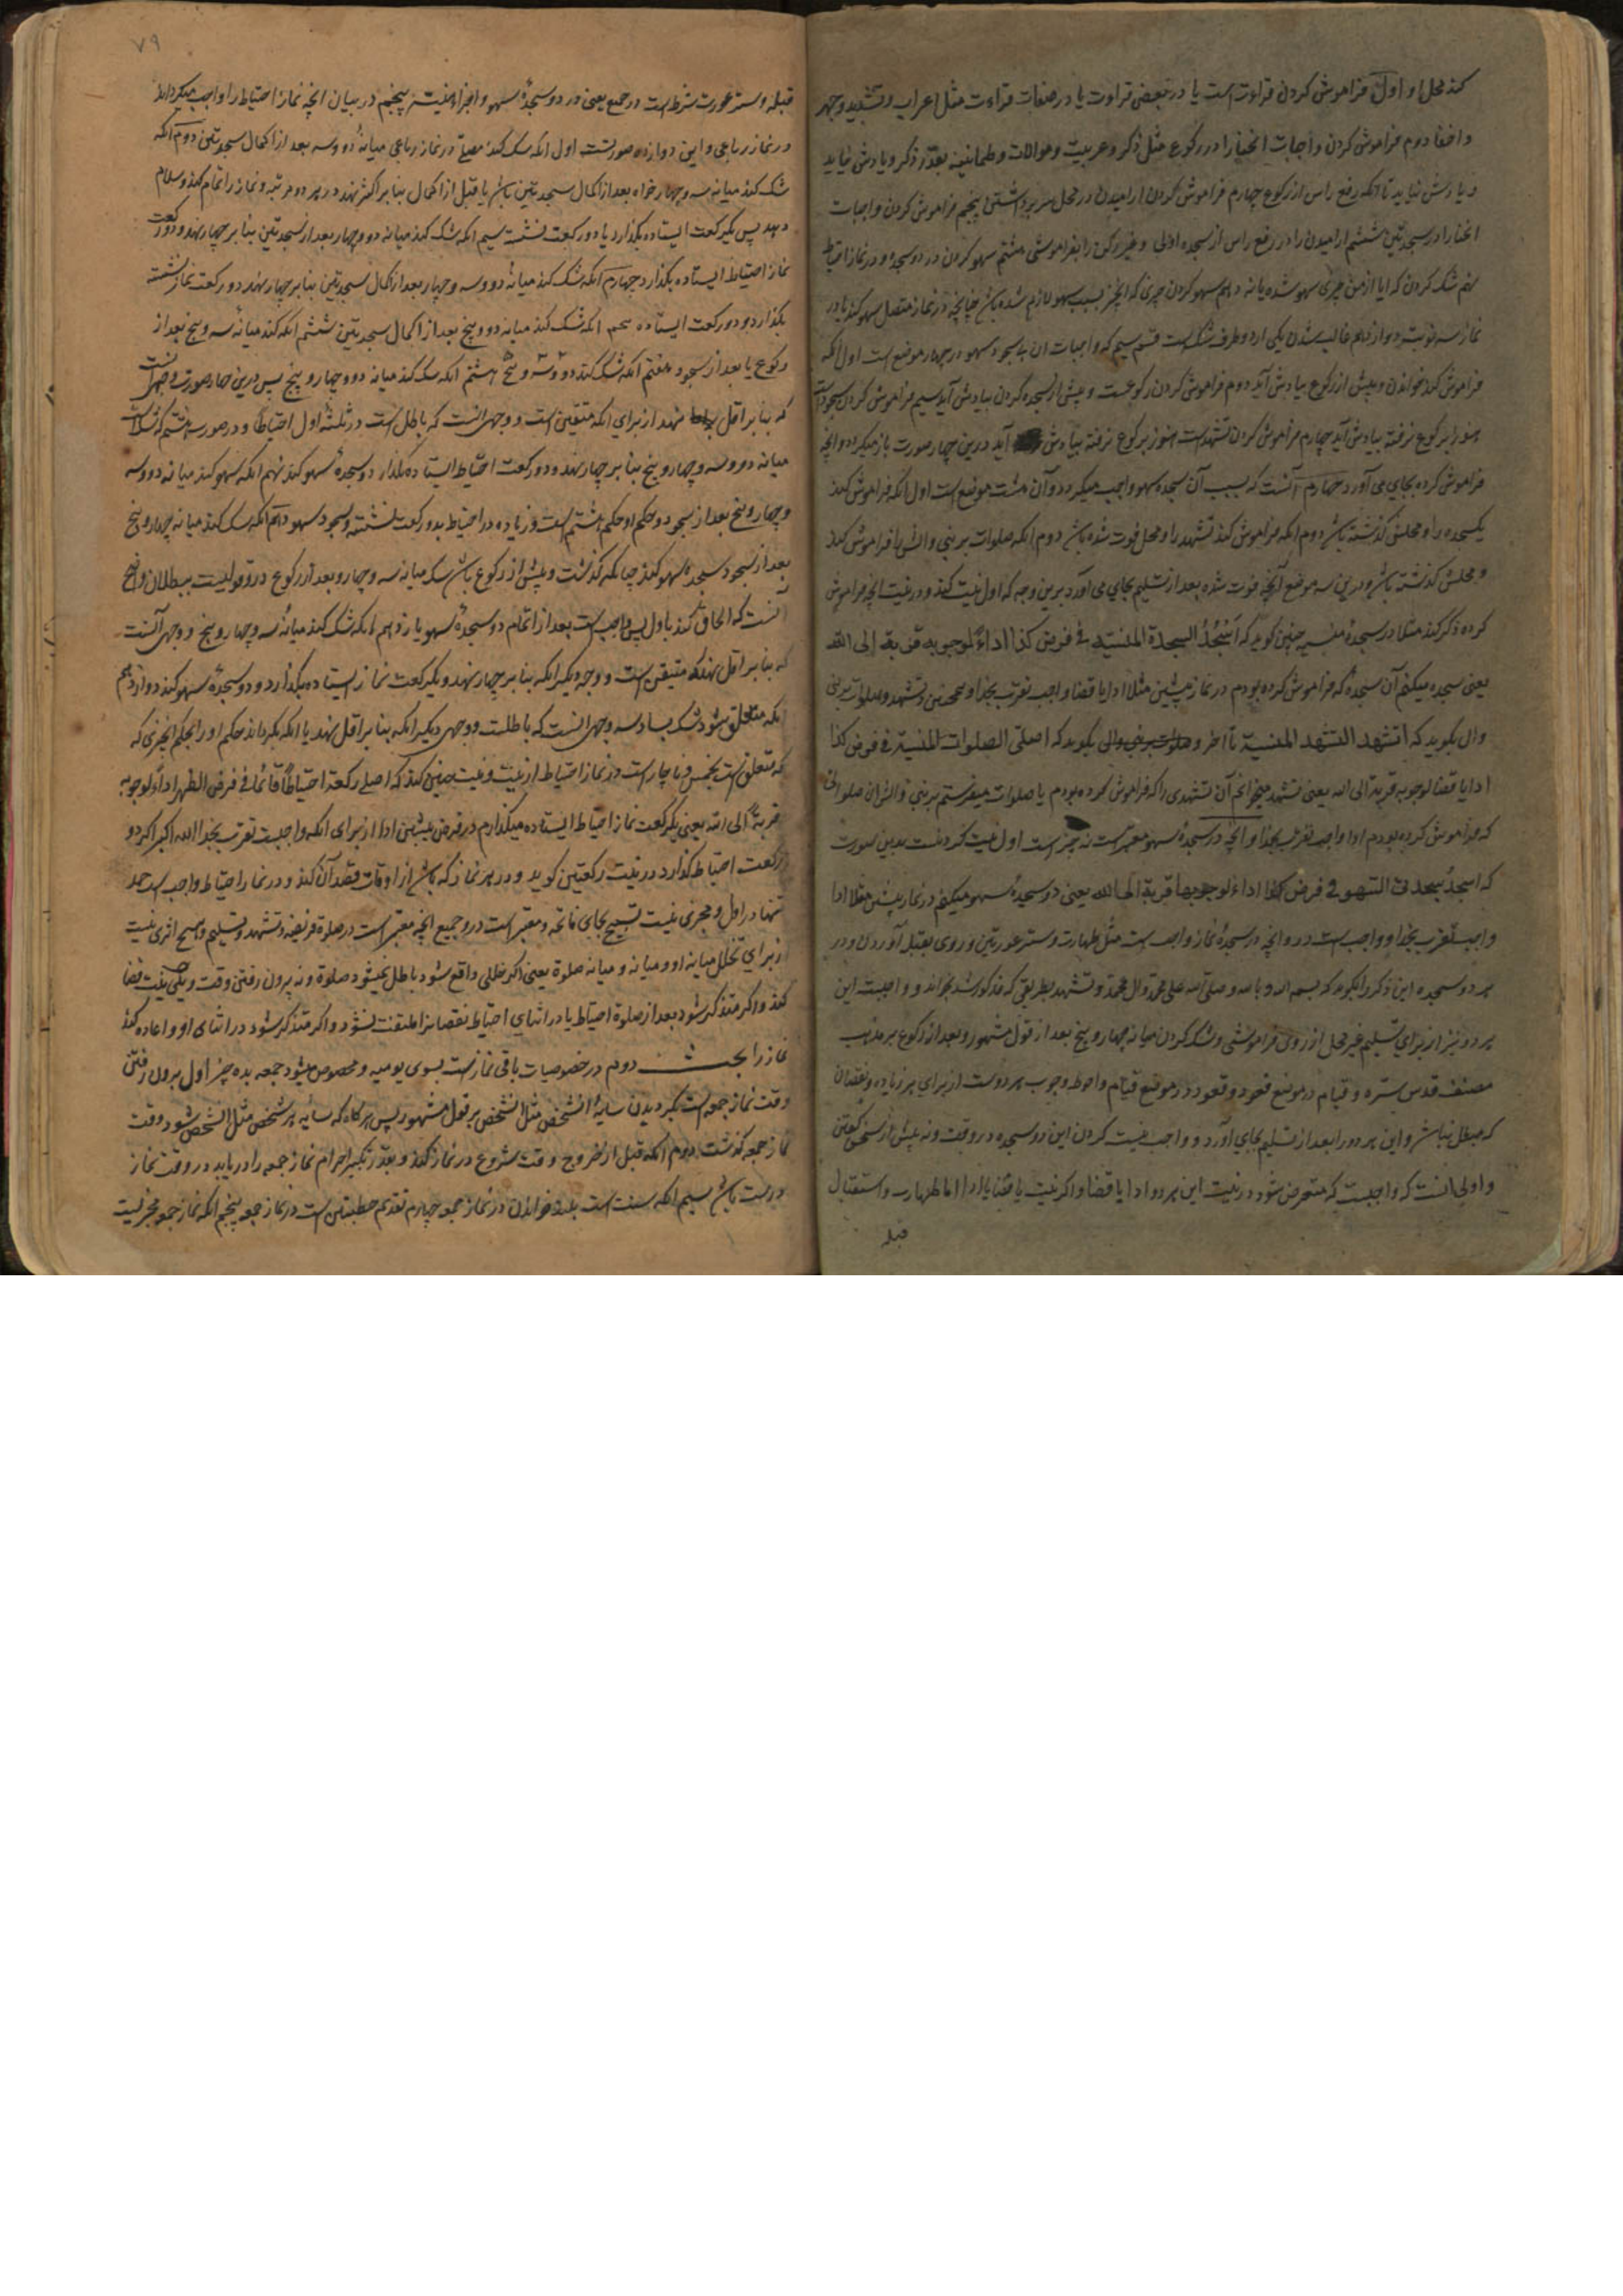 کند محل او اول فراموش کردن قراوت است یا در بعضی قراوت یا در صفات قراءت مثل اعراب و تشدید و جهر
و اخفا دوم فراموش کردن واجبات انحنا را در رکوع مثل ذکر و عربیت و موالات و طمانینه بقدر ذکر و یادش نیاید
و یادش نیاید تا آنکه رفع راس از رکوع چهارم فراموش کردن ارامیدن در محل سر برداشتن پنجم فراموش کردن واجبات
انحنا را در سجدتین ششم ارامیدن را در رفع راس از سجده اولی و غیر رکن را بفراموشی هشتم سهو کردن در دو سجده و در نماز احتیاط
نهم شک کردن که ایا از من چیزی سهو شده یا نه دهم سهو کردن چیزی که انچیز بسبب سهو لازم شده باش چنانچه در نماز متصل سهو کند یا در
نماز سه نوبت دوازدهم غالب شدن یکی از دو طرف شک است قسم سیم که واجبات ان بی سجود سهو در چهار موضع است اول آنکه
فراموش کند خواندن و پیش از رکوع بیادش آید دوم فراموش کردن رکوعست و پیش از سجده کردن بیادش آید سیم فراموش کردن سجودست
هنوز برکوع نرفته بیادش آید چهارم فراموش کردن تشهد است هنوز برکوع نرفته بیادش آید درین چهار صورت باز میکردد و انچه
فراموش کرده بجای می آورد چهارم آنست که بسبب آن سجده سهو واجب میکردد و آن هشت موضع است اول آنکه فراموش کند
یکسجده را و محلش گذشته باش دوم آنکه فراموش کند تشهد را و محل فوت شده باش دوم آنکه صلوات بر نبی و الش را فراموش کند
و محلش گذشته باش و درین سه موضع آنچه فوت شده بعد از تسلیم بجای می آورد برین وجه که اول نیت کند و در نیت انچه فراموش
کرده ذکر کند مثلا در سجده منسیه چنین گوید که اَسْجُدُ السجدة المنسیه فی فرض کذا اداءً لوجوبه قربة الی الله
یعنی سجده میکنم آن سجده که فراموش کرده بودم در نماز پیشین مثلا ادا یا قضا واجب تقرب بخدا و همچنین تشهد و صلوات بر نبی
و ال بگوید که اتشهد التشهد المنسیة تا اخر و صلوات بر نبی و ال بگوید که اصلی الصلوات المنسیة فی فرض کذا
ادا یا قضا لوجوبه قربة الی الله یعنی تشهد میخوانم آن تشهدی را که فراموش کرده بودم یا صلوات میفرستم بر نبی و الش ان صلواتی
که فراموش کرده بودم ادا واجب تقرب بخدا و انچه در سجده سهو معتبر است نه چیز است اول نیت کردنست بدین صورت
که اسجدُ سجدتی السهو فی فرض کذا اداءً لوجوبهما قربة الی الله یعنی دو سجده سهو میکنم در نماز پیشین مثلا ادا
واجب تقرب بخدا و واجب است در و انچه در سجده نماز واجب است مثل طهارت و ستر عورتین و روی بقبله آوردن و در
هر دو سجده این ذکر را بگوید که بسم الله و بالله و صلی الله علی محمد و ال محمد و تشهد بطریقی که مذکور شد بخواند و واجبست این
هر دو نیز از برای تسلیم غیر محل از روی فراموشی و شک کردن میانه چهار و پنج بعد از قول مشهور و بعد از رکوع بر مذهب
مصنف قدس سره و قیام در موضع قعود و قعود در موضع قیام و احوط وجوب هر دوست از برای هر زیاده و نقصان
که مبطل نباش و این هر دو را بعد از تسلیم بجای آورد و واجب نیست کردن این دو سجده در وقت و نه پیش از سخن گفتن
و اولی انست که واجبست که متعرض شود در نیت این هر دو ادا یا قضا و اگر نیت یا قضا یا ادا اما طهارت و استقبال
قبله
۷۹
قبله و ستر عورت شرط است در جمیع یعنی در دو سجده سهو و اجزا منسیه پنجم در بیان انچه نماز احتیاط را واجب میگرداند
در نماز رباعی و این دوازده صورتست اول آنکه شک کند مصلی در نماز رباعی میانه دو و سه بعد از اکمال سجدتین دوم آنکه
شک کند میانه سه و چهار خواه بعد از اکمال سجدتین باش یا قبل از اکمال بنا بر اکثر نهد در هر دو مرتبه و نماز را تمام کند و سلام
دهد پس یکرکعت ایستاده بگذارد یا دو رکعت نشسته سیم آنکه شک کند میانه دو و چهار بعد از سجدتین بنا بر چهار نهد و دو رکعت
نماز احتیاط ایستاده بگذارد چهارم آنکه شک کند میانه دو و سه و چهار بعد از اکمال سجدتین بنا بر چهار نهد دو رکعت نماز نشسته
بگذارد و دو رکعت ایستاده پنجم آنکه شک کند میانه دو و پنج بعد از اکمال سجدتین ششم آنکه کند میانه سه و پنج بعد از
رکوع یا بعد از سجود هفتم آنکه شک کند دو و سه و پنج هشتم آنکه شک کند میانه دو و چهار و پنج پس درین چهار صورت وجهی انست
که بنا بر اقل نهد از برای آنکه متیقن است و وجهی انست که باطل است در ثلثه اول احتیاطا و در صورت هشتم که شک است
میانه دو و سه و چهار و پنج بنا بر چهار نهد و دو رکعت احتیاط ایستاده بگذارد و دو سجده سهو کند نهم آنکه سهو کند میانه دو و سه
و چهار و پنج بعد از سجود و حکم او حکم هشتم است و زیاده در احتیاط بدو رکعت نشسته و سجود سهو دهم آنکه شک کند میانه چهار و پنج
بعد از سجود سجده سهو کند چنانکه گذشت و پیش از رکوع باش شک میانه سه و چهار و بعد از رکوع درو قولیست ببطلان و اصح
آنست که الحاق کند باول پس واجب است بعد از اتمام دو سجده سهو یازدهم آنکه شک کند میانه سه و چهار و پنج و وجهی آنست
که بنا بر اقل نهد که متیقن است و وجه دیگر آنکه بنا بر چهار نهد و یکرکعت نماز ایستاده بگذارد و دو سجده سهو کند دوازدهم
آنکه متعلق شود شک بسادسه وجهی انست که باطلست و وجهی دیگر آنکه بنا بر اقل نهد یا آنکه بگرداند حکم او را بحکم انچیزی که
که متعلق است بخمس و ناچار است در نماز احتیاط از نیت و نیت چنین کند که اصلی رکعة احتیاطاً قائما فی فرض الظهر اداءً لوجوبه
قربةً الی الله یعنی یکرکعت نماز احتیاط ایستاده میگذارم در فرض پیشین ادا از برای آنکه واجبست تقرب بخدا الله اکبر اگر دو
رکعت احتیاط گذارد در نیت رکعتین گوید و در هر نماز که باش از اوقات قصد آن کند و در نماز احتیاط واجب است حمد
تنها در اول و مجزی نیست تسبیح بجای فاتحه و معتبر است در و جمیع انچه معتبر است در صلوة فریضه و تشهد و تسلیم و هیچ اثری نیست
از برای تخلل میانه او و میانه و میانه صلوة یعنی اگر خللی واقع شود باطل نمیشود صلوة و نه بیرون رفتن وقت و لیکن نیت قضا
کند و اگر متذکر شود بعد از صلوة احتیاط یا در اثنای احتیاط نقصانرا ملتفت نشود و اگر متذکر شود در اثنای او و اعاده کند
نماز را بحث دوم در خصوصیات باقی نماز است بسوی یومیه و مخصوص میشود جمعه بده چیز اول بیرون رفتن
وقت نماز جمعه است بگردیدن سایه الشخص مثل الشخص بر قول مشهور پس هرگاه که سایه هر شخص مثل الشخص شود وقت
نماز جمعه گذشت دوم آنکه قبل از خروج وقت شروع در نماز کند و بقدر تکبیر احرام نماز جمعه را دریابد در وقت نماز
درست باش سیم آنکه سنت است بلند خواندن در نماز جمعه چهارم تقدیم خطبتین است در نماز جمعه پنجم آنکه نماز جمعه مجزیست